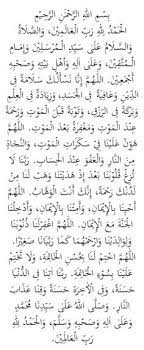 بِسْمِ اللَّهِ الرَّحْمَنِ الرَّحِيْمِ
اَلْحَمْدُ لِلَّهِ رَبِّ الْعَالَمِيْنَ، وَالصَّلَاةُ
وَالسَّلَامُ عَلَى سَيِّدِ الْمُرْسَلِيْنَ وَإِمَامِ
الْمُتَّقِيْنَ، وَعَلَى آلِهِ وَأَهْلِ بَيْتِهِ وَصَحْبِهِ
أَجْمَعِيْنَ. اَللَّهُمَّ إِنَّا نَسْأَلُكَ سَلَامَةً فِي
الدِّيْنِ وَعَافِيَةً فِي الْجَسَدِ، وَزِيَادَةً فِي الْعِلْمِ،
وَبَرَكَةً فِي الرِّزْقِ، وَتَوْبَةً قَبْلَ الْمَوْتِ، وَرَحْمَةً
عِنْدَ الْمَوْتِ، وَمَغْفِرَةً بَعْدَ الْمَوْتِ. اَللَّهُمَّ
هَوِّنْ عَلَيْنَا فِيْ سَكَرَاتِ الْمَوْتِ، وَالنَّجَاةَ
مِنَ النَّارِ وَالْعَفْوَ عِنْدَ الْحِسَابِ. رَبَّنَا لَا
تُزِغْ قُلُوْبَنَا بَعْدَ إِذْ هَدَيْتَنَا وَهَبْ لَنَا مِنْ
لَدُنْكَ رَحْمَةً، إِنَّكَ أَنْتَ الْوَهَّابُ. اَللَّهُمَّ
أَحْيِنَا بِالْإِيْمَانِ، وَأَمِتْنَا بِالْإِيْمَانِ، وَأَدْخِلْنَا
الْجَنَّةَ مَعَ الْإِيْمَانِ. اَللَّهُمَّ اغْفِرْ لَنَا ذُنُوْبَنَا
وَلِوَالِدَيْنَا وَارْحَمْهُمَا كَمَا رَبَّيَانَا صَغِيْرًا.
اَللَّهُمَّ اخْتِمْ لَنَا بِحُسْنِ الْخَاتِمَةِ، وَلَا تَخْتِمْ
عَلَيْنَا بِسُوْءِ الْخَاتِمَةِ. رَبَّنَا آتِنَا فِي الدُّنْيَا
حَسَنَةً وَفِي الْآخِرَةِ حَسَنَةً وَقِنَا عَذَابَ
النَّارِ. وَصَلَّى اللهُ عَلَى سَيِّدِنَا مُحَمَّدٍ
وَعَلَى آلِهِ وَصَحْبِهِ وَسَلَّمَ، وَالْحَمْدُ لِلَّهِ
رَبِّ الْعَالَمِيْنَ.